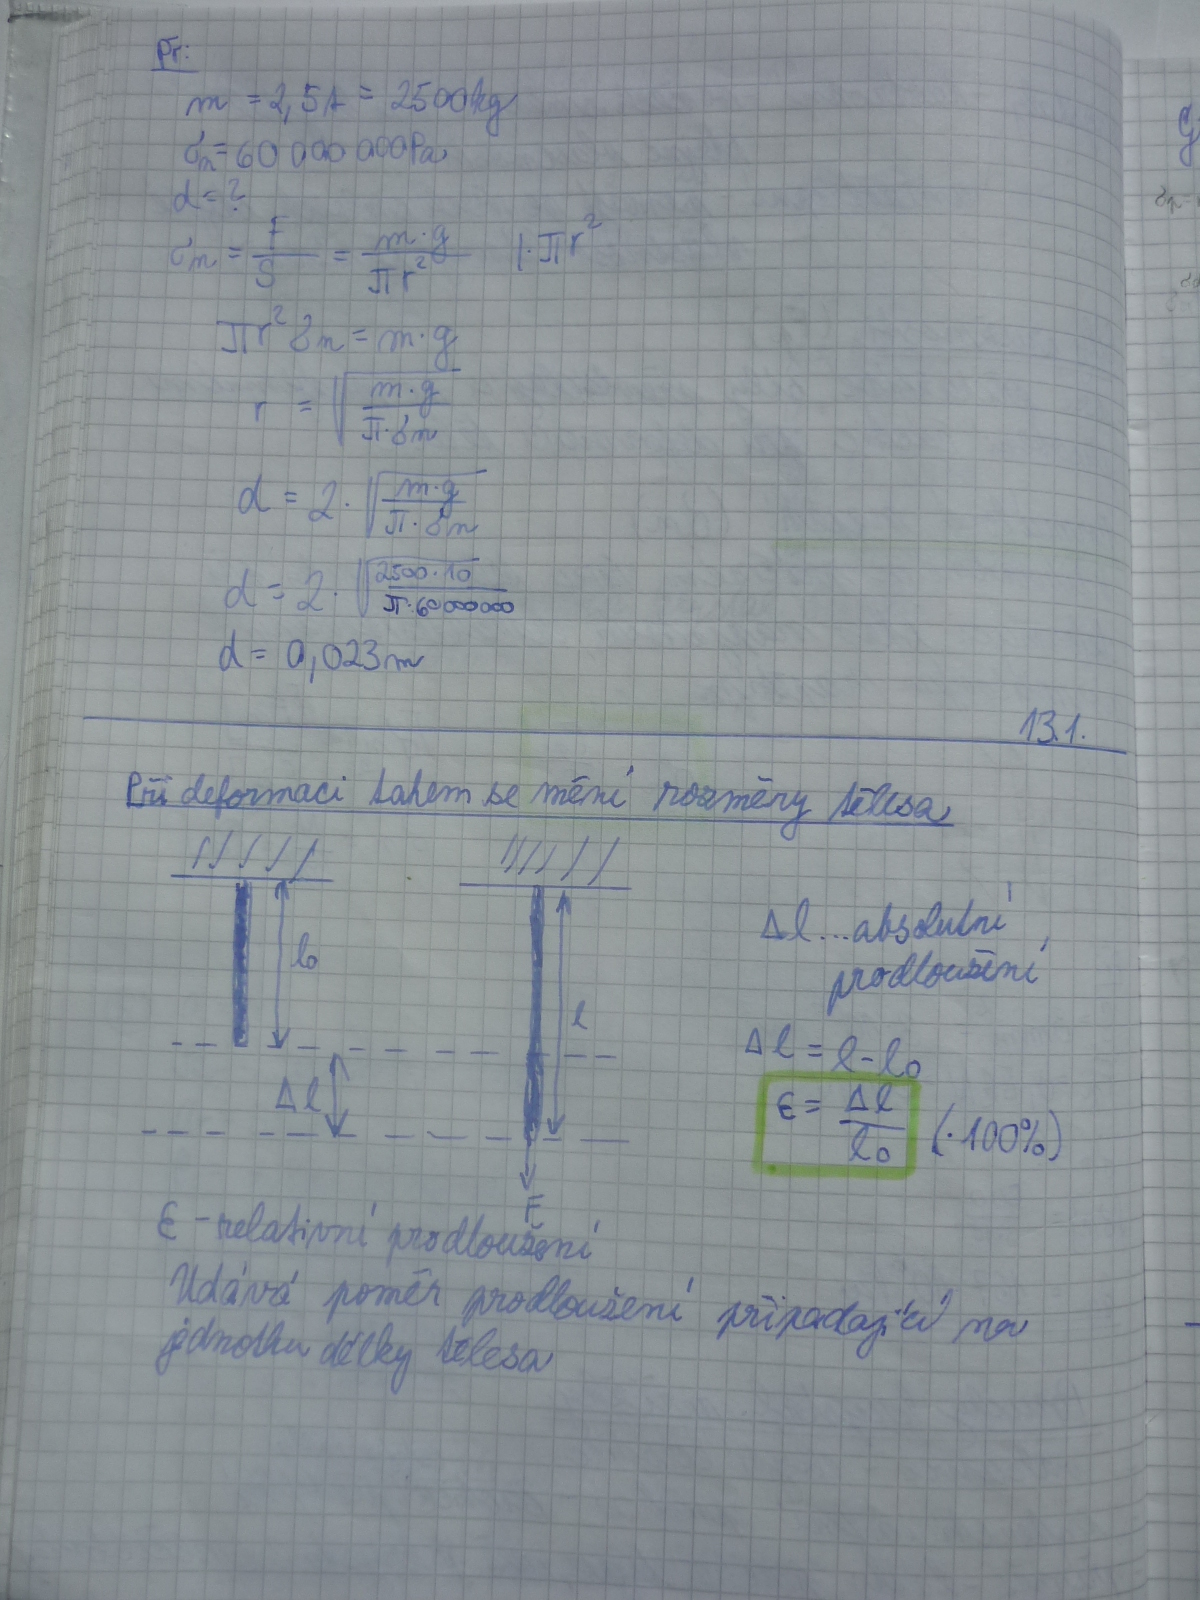 Př:
m = 2,5t = 2500kg
σn = 60 000 000Pa
d = ?
σn = F/S = m·g/πr² |·πr²
πr² σn = m·g
r = √(m·g/π·σn)
d = 2·√(m·g/π·σn)
d = 2·√(2500·10/π·60000000)
d = 0,023m
13.1.
Při deformaci tahem se mění rozměry tělesa
l₀
l
Δl
F
Δl...absolutní
prodloužení
Δl = l-l₀
ε = Δl/l₀ (·100%)
ε - relativní prodloužení
Udává poměr prodloužení připadající na
jednotku délky tělesa